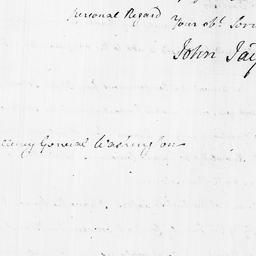 personal Regard
Your obt. Serv
John Jay
General Washington